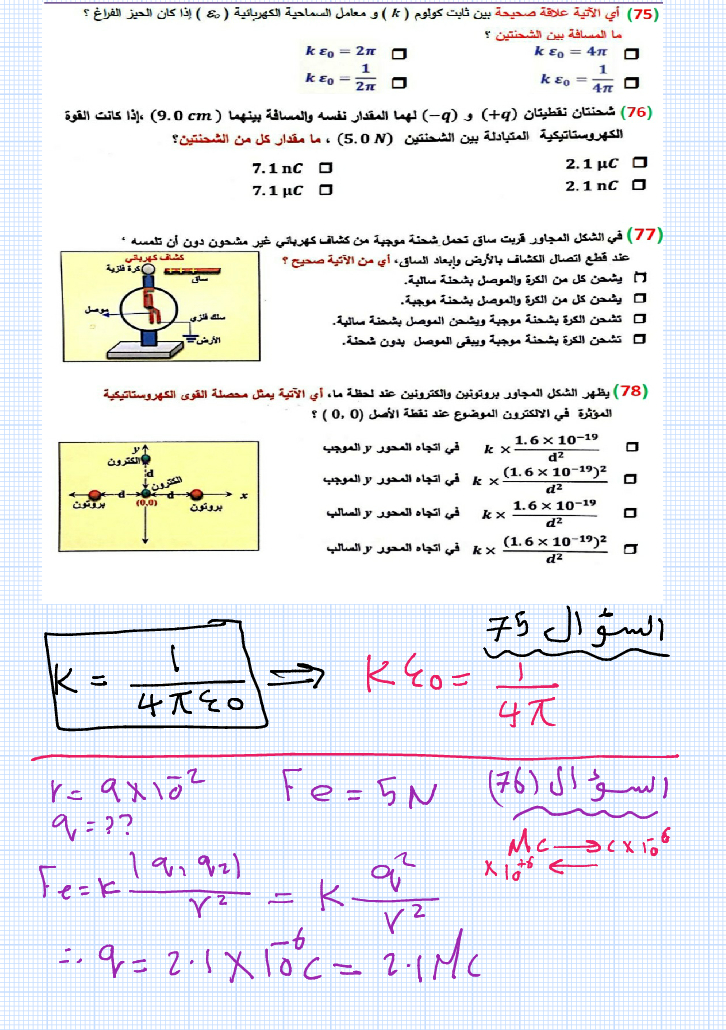 (75) أي الآتية علاقة صحيحة بين ثابت كولوم ( k ) و معامل السماحية الكهربائية ( ε₀ ) إذا كان الحيز الفراغ ؟
ما المسافة بين الشحنتين ؟
k ε₀ = 4π
k ε₀ = 2π
k ε₀ = 1/4π
k ε₀ = 1/2π
(76) شحنتان نقطيتان (+q) و (−q) لهما المقدار نفسه والمسافة بينهما ( 9.0 cm) ،إذا كانت القوة
الكهروستاتيكية المتبادلة بين الشحنتين (5.0 N) ، ما مقدار كل من الشحنتين؟
2.1 μC
7.1 nC
2.1 nC
7.1 μC
(77) في الشكل المجاور قربت ساق تحمل شحنة موجبة من كشاف كهربائي غير مشحون دون أن تلمسه ،
عند قطع اتصال الكشاف بالأرض وإبعاد الساق، أي من الآتية صحيح ؟
يشحن كل من الكرة والموصل بشحنة سالبة.
يشحن كل من الكرة والموصل بشحنة موجبة.
تشحن الكرة بشحنة موجبة ويشحن الموصل بشحنة سالبة.
تشحن الكرة بشحنة موجبة ويبقى الموصل بدون شحنة.
كشاف كهربائي
كرة فلزية
ساق
موصل
سلك فلزي
الأرض
(78) يظهر الشكل المجاور بروتونين والكترونين عند لحظة ما، أي الآتية يمثل محصلة القوى الكهروستاتيكية
المؤثرة في الالكترون الموضوع عند نقطة الأصل (0, 0 ) ؟
k × 1.6 × 10⁻¹⁹/d² في اتجاه المحور y الموجب
k × (1.6 × 10⁻¹⁹)²/d² في اتجاه المحور y الموجب
k × 1.6 × 10⁻¹⁹/d² في اتجاه المحور y السالب
k × (1.6 × 10⁻¹⁹)²/d² في اتجاه المحور y السالب
y
الكترون
d
الكترون
d d x
بروتون (0,0) بروتون
السؤال 75
k = 1/4πε0 ⇒ kε0 = 1/4π
السؤال (76)
r = 9×10⁻² Fe = 5N
q = ??
Mc → c×10⁻⁶
×10⁺⁶ ←
Fe = k |q₁ q₂|/r² = k q²/r²
∴ q = 2.1 × 10⁻⁶ C = 2.1 Mc